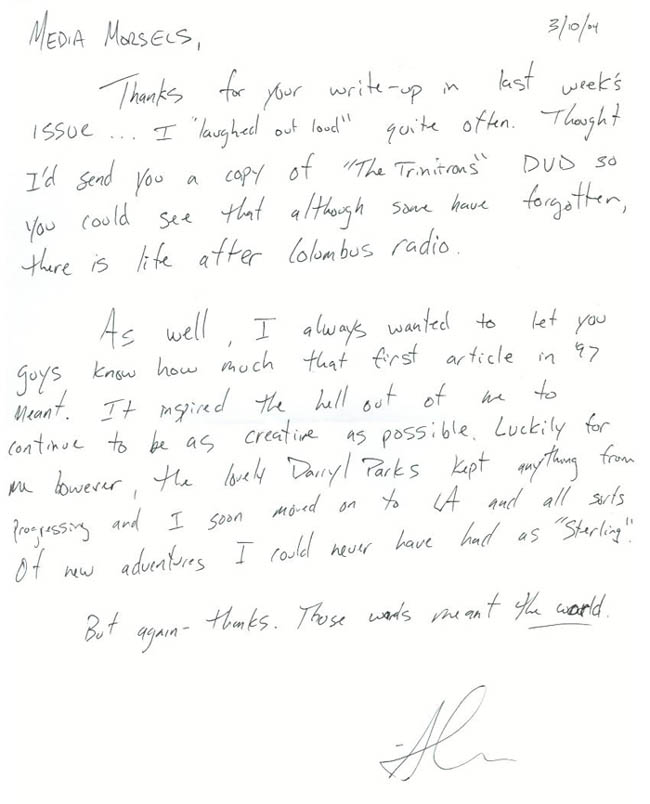 3/10/04
MEDIA MORSELS,
Thanks for your write-up in last week's
issue... I "laughed out loud" quite often. Thought
I'd send you a copy of "The Trinitrons" DVD so
you could see that although some have forgotten,
there is life after Columbus radio.
As well, I always wanted to let you
guys know how much that first article in '97
meant. It inspired the hell out of me to
continue to be as creative as possible. Luckily for
me however, the lovely Darryl Parks kept anything from
progressing and I soon moved on to LA and all sorts
of new adventures I could never have had as "Sterling".
But again- thanks. Those words meant the world.